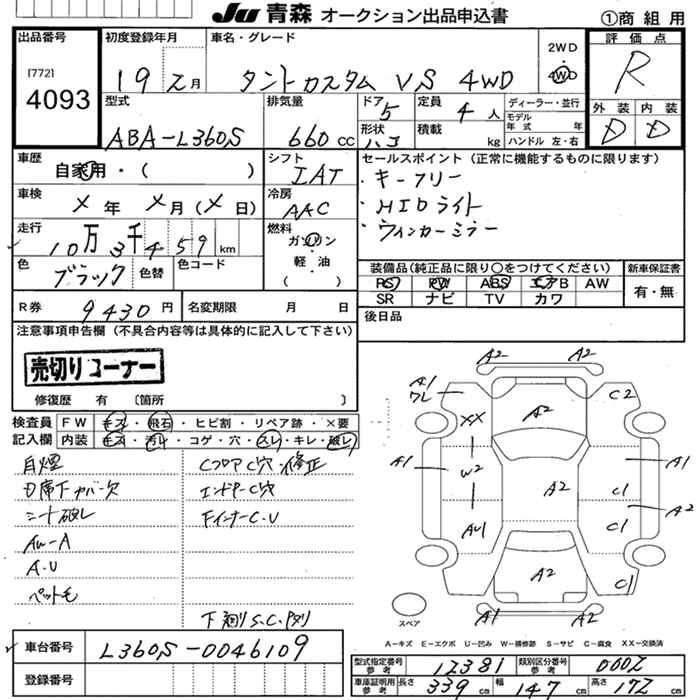 JU 青森 オークション出品申込書 ①商組用
出品番号
[772]
4093
初度登録年月
19 2月
車名・グレード
タントカスタム VS 4WD
2WD
4WD
評価点
R
外装 内装
D D
型式
ABA-L360S
排気量
660 cc
ドア 5
形状 ハコ
定員 4 人
積載 kg
ディーラー・並行
モデル年式 年
ハンドル 左・右
車歴
自家用・( )
シフト
IAT
セールスポイント(正常に機能するものに限ります)
・キーフリー
・HIDライト
・ウィンカーミラー
車検
×年 ×月(×日)
冷房
AAC
走行
10万3千459km
燃料
ガソリン
軽・油
( )
色
ブラック
色替
色コード
装備品(純正品に限り○をつけてください)
PS PW ABS エアB AW
SR ナビ TV カワ
新車保証書
有・無
R券 9430円
名変期限 月 日
後日品
注意事項申告欄(不具合内容等は具体的に記入して下さい)
売切りコーナー
修復歴 有 〔箇所 〕
検査員記入欄
FW キズ・飛石・ヒビ割・リペア跡・×要
内装 キズ・汚レ・コゲ・穴・スレ・キレ・破レ
目煙
D席下カバー欠
シート破レ
AW-A
A.U
ペット毛
CフロアC穴 修正
エンドPC穴
FインナーC.U
下廻りS.C.
A2 A2
A1
ワレ
C2
XX
A2
A1
W2
A2
A1
C1
A2
AU1
C1
A2
C1
A1 A2
スペア
A－キズ E－エクボ U－凹み W－補修跡 S－サビ C－腐食 XX－交換済
車台番号 L360S-0046109
登録番号
型式指定番号 参考 12381
類別区分番号 参考 0002
車庫証明用 参考 長さ 339 cm 幅 147 cm 高さ 172 cm